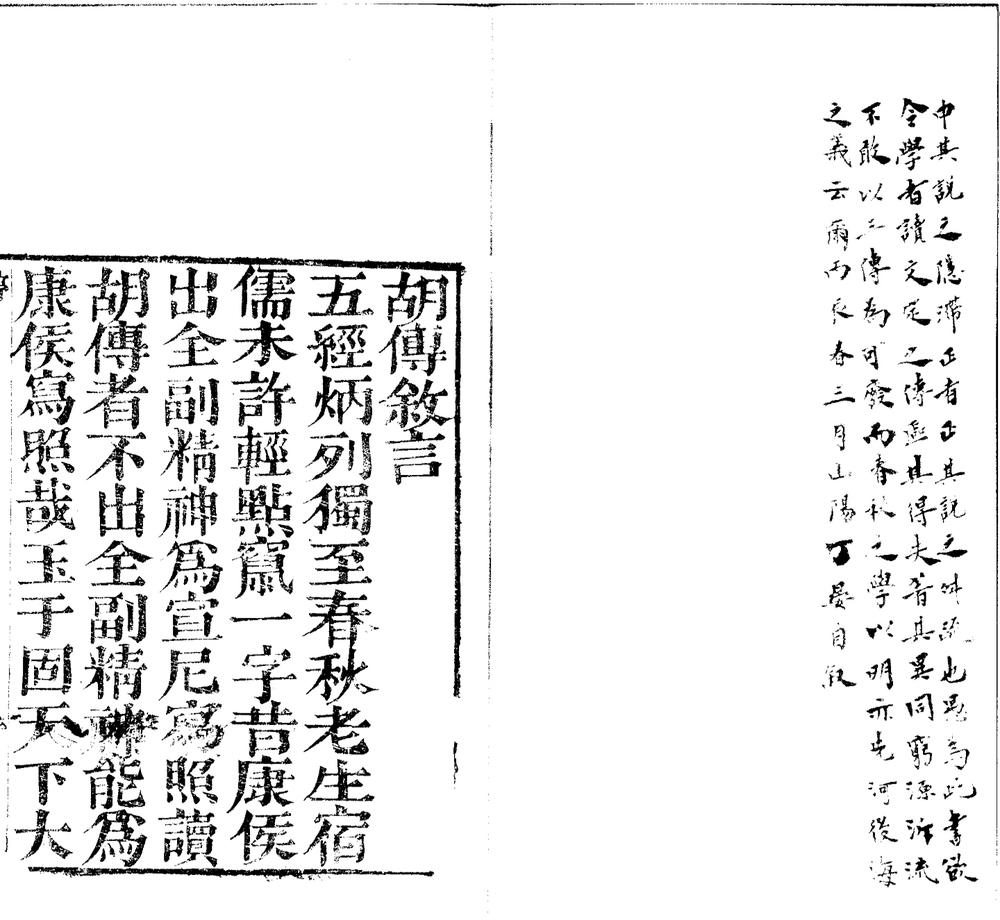 中其說之隱滯正有正其說之舛疏也為此書欲
令學者讀文定之傳其得失著其異同窮源泝流
不敢以三傳為可廢而春秋之學以明亦先河後海
之義云爾丙辰春三月山陽丁晏自敘
胡傳敘言
五經炳列獨至春秋老生宿
儒未許輕點竄一字昔康侯
出全副精神為宣尼寫照讀
胡傳者不出全副精神能為
康侯寫照哉玉于固天下大